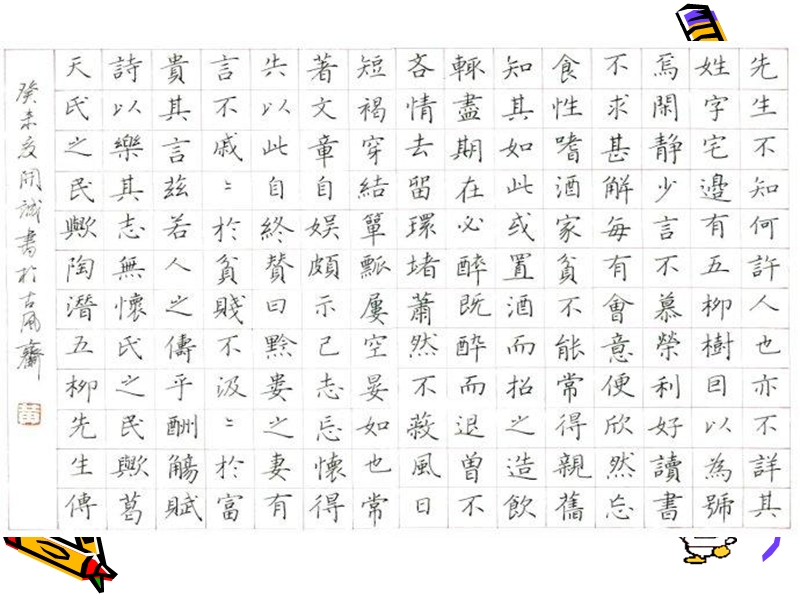 先生不知何許人也亦不詳其
姓字宅邊有五柳樹囙以為號
焉閑静少言不慕榮利好讀書
不求甚解每有會意便欣然忘
食性嗜酒家貧不能常得親舊
知其如此或置酒而招之造飲
輒盡期在必醉既醉而退曾不
吝情去留環堵蕭然不蔽風日
短褐穿結簞瓢屢空晏如也常
著文章自娱頗示己志忘懷得
失以此自終賛曰黔婁之妻有
言不戚〻於貧賤不汲〻於富
貴其言兹若人之儔乎酬觴賦
詩以樂其志無懷氏之民歟葛
天氏之民歟陶潛五柳先生傳
癸未夏開誠書於古風齋
黄